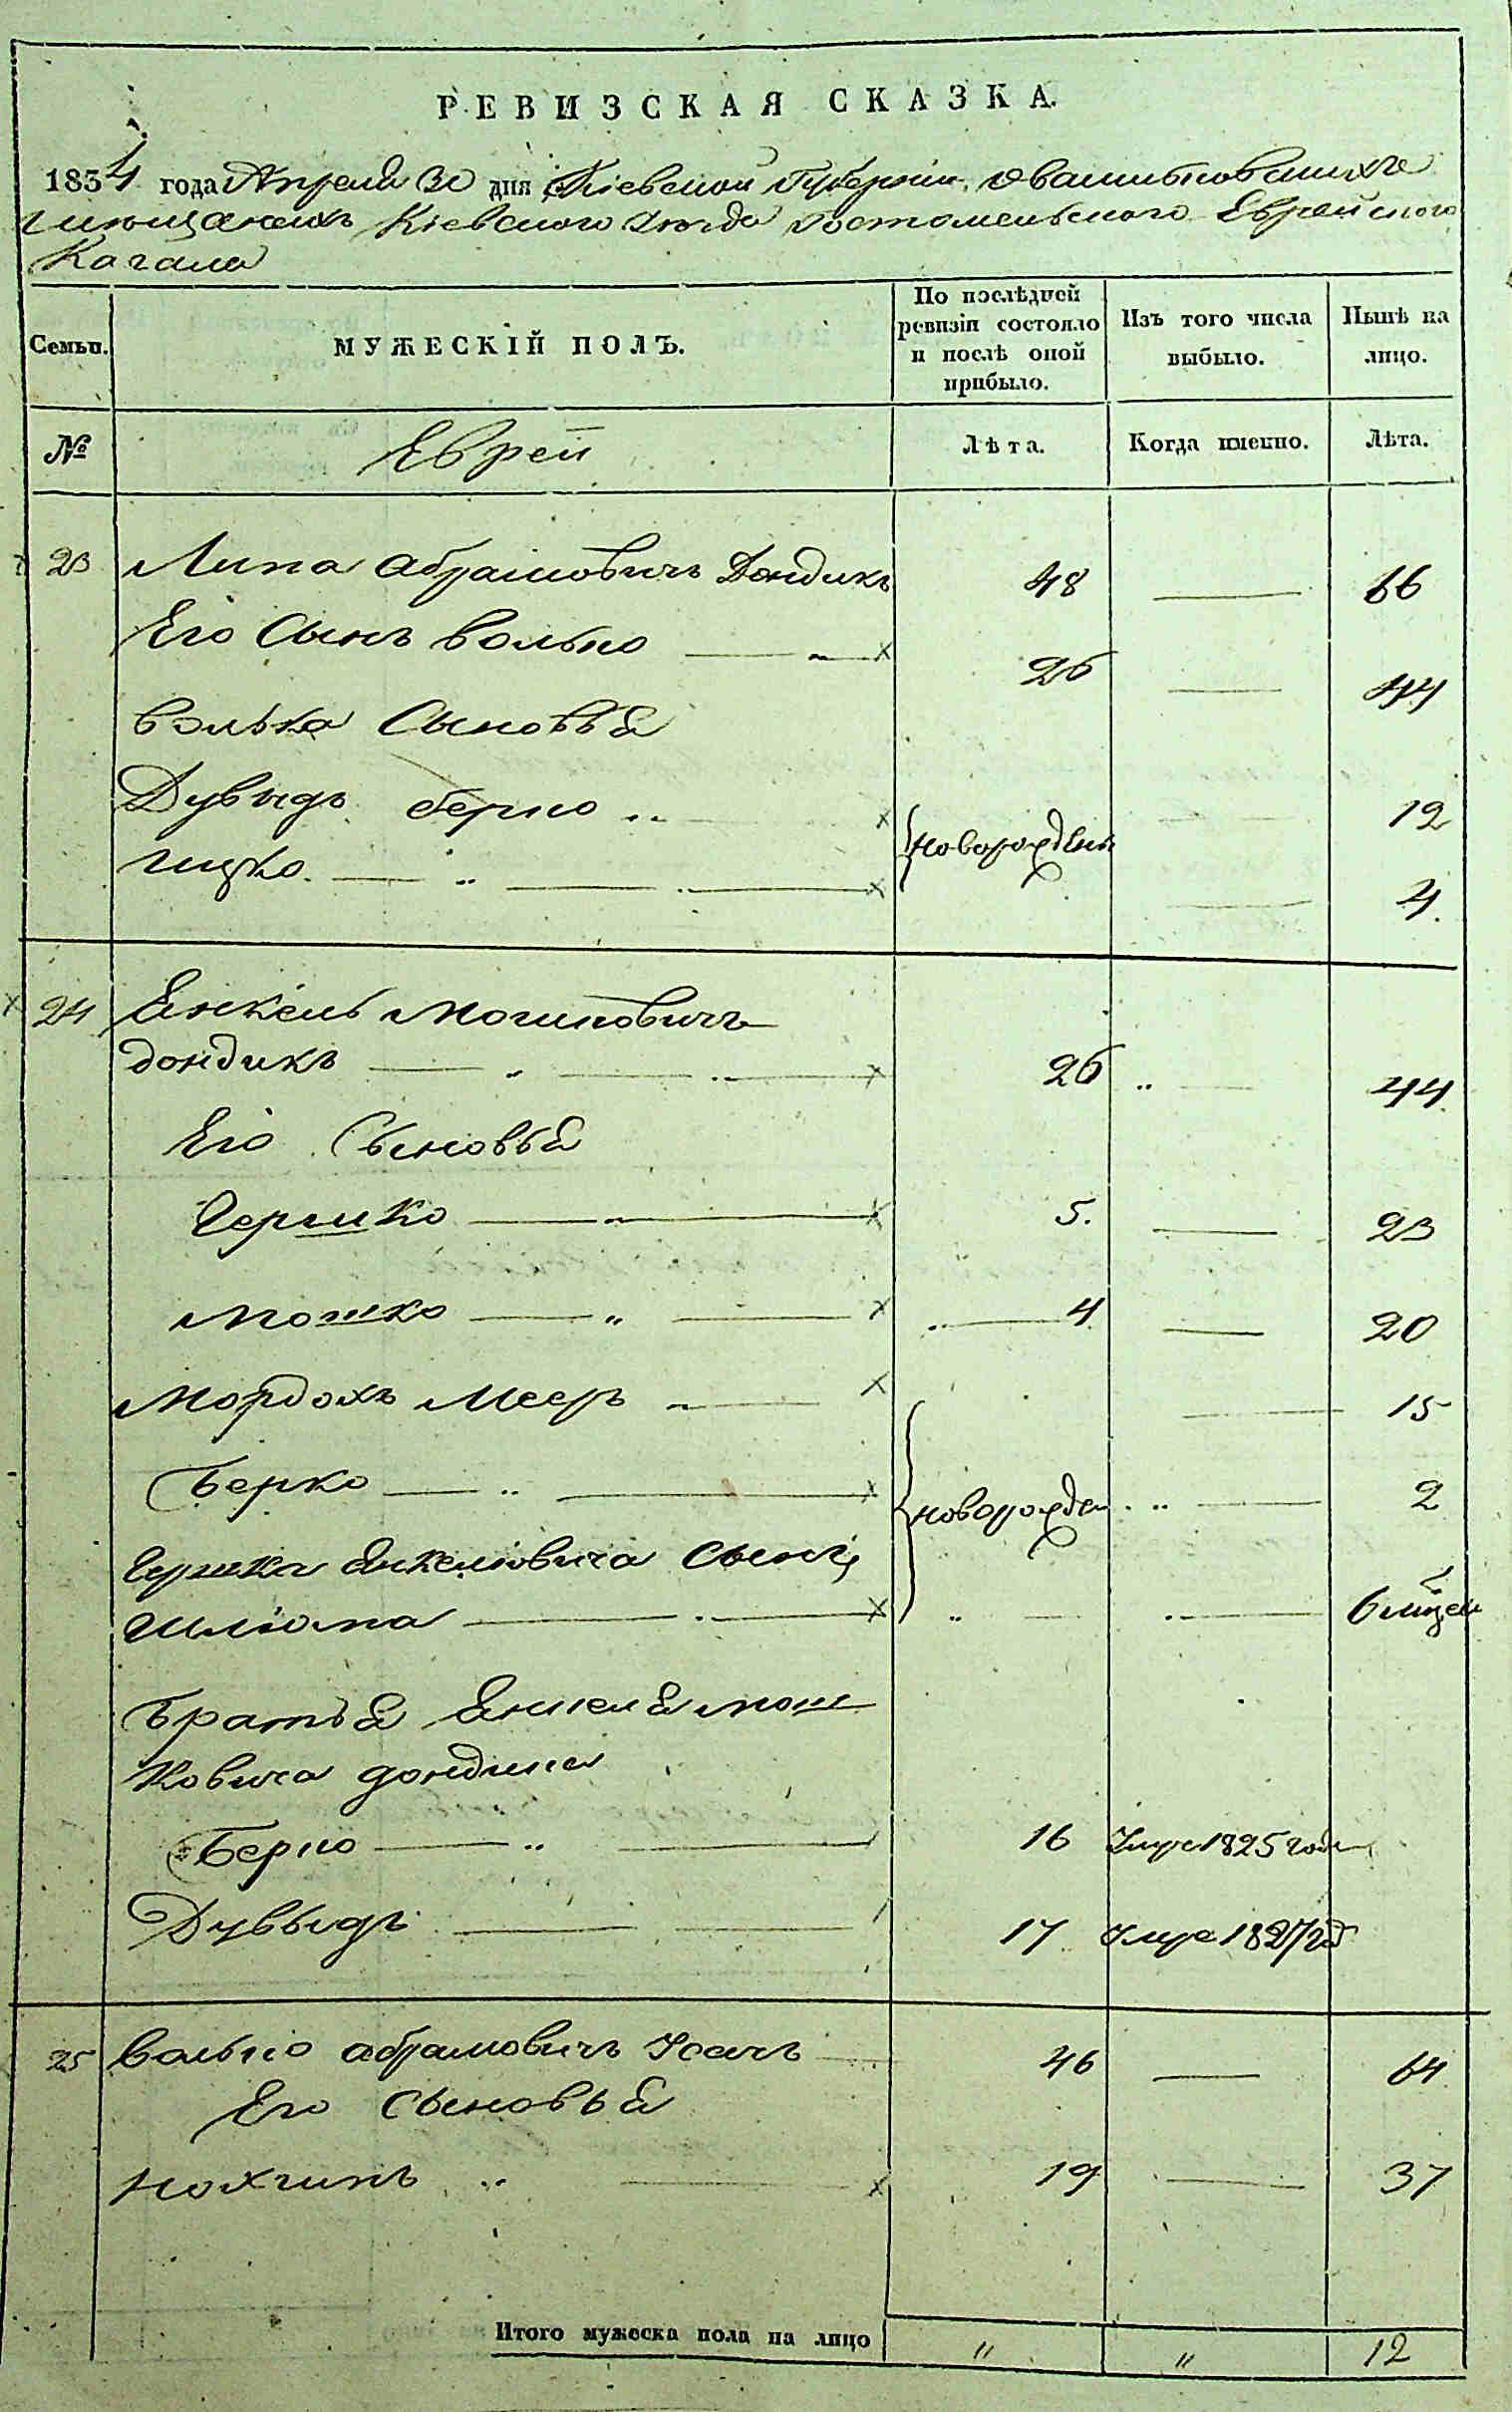 РЕВИЗСКАЯ СКАЗКА.
1834 года Апреля 30 дня Кіевской Губерніи
Кіевского Гостомельского Еврейского
Кагала
Семьи. МУЖЕСКІЙ ПОЛЪ. По послѣдней ревизіи состояло и послѣ оной прибыло. Изъ того числа выбыло. Нынѣ на лицо.
№ Евреи Лѣта. Когда именно. Лѣта.
23 Липа Абрамовичъ Дондикъ 48 — 66
Его Сынъ Волько — „ — x 26 — 44
Волька Сыновья
Дувыдъ Берко „ — x 12
Ицко — „ — x новорожден — 4.
24 Янкель Мошковичъ
дондикъ — „ — x 26 „ — 44.
Его Сыновья
Гершко — „ — x 5. — 23
Мошко — „ — x „ — 4 — 20
Мордохъ Меер „ — x — 15
Берко — „ — x новорожден „ — 2
Гершка Янкелиовича Сынъ,
Шлиома — x „ — — 6 мѣсец
братья Янкеля мош
ковича дондика
Берко — „ — 16 Умре 1825 года
Дувыдъ — — 17 Умре 1827 год
25 Волько Абрамовичъ Усачъ — 46 — 64
Его Сыновья
Нохимъ „ — x 19 — 37
Итого мужеска пола на лицо „ „ 12